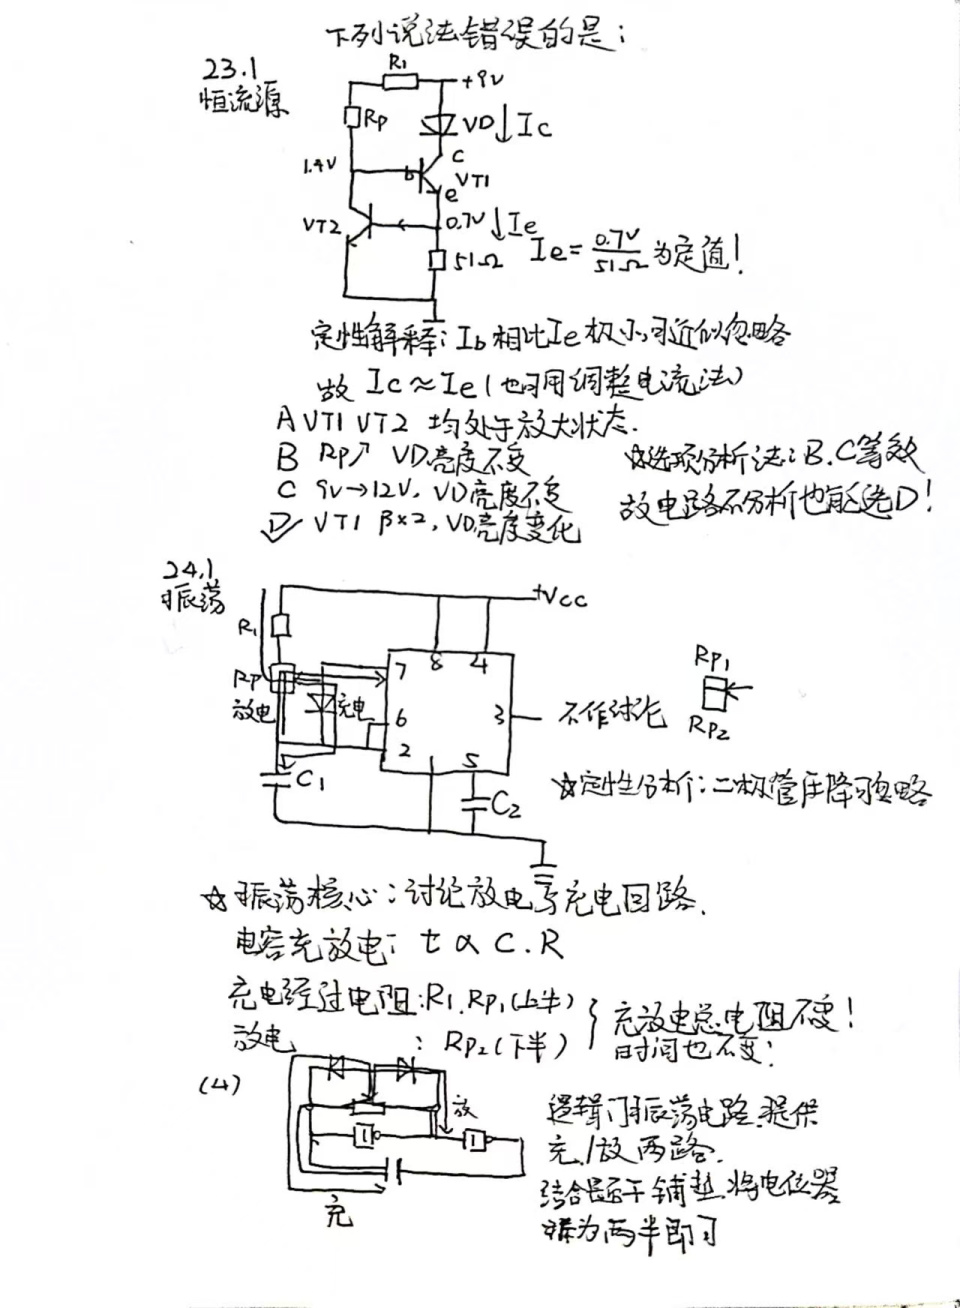 下列说法错误的是：
23.1
恒流源
R1
+9V
Rp
VD
Ic
1.4V
b
c
VT1
e
VT2
0.7V
Ie
51Ω
Ie=0.7V/51Ω为定值！
定性解释：Ib相比Ie极小,可近似忽略
故 Ic≈Ie(也可用调整电流法)
A VT1 VT2 均处于放大状态.
B Rp↗ VD亮度不变
C 9V→12V, VD亮度不变
D VT1 β×2, VD亮度变化
☆选项分析法：B.C等效
故电路不分析也能选D！
24.1
振荡
+Vcc
R1
RP
放电
充电
7
8
4
6
3
2
1
5
C1
C2
不作讨论
Rp1
Rp2
☆定性分析：二极管压降可忽略
☆振荡核心：讨论放电与充电回路.
电容充放电： t∝C.R
充电经过电阻：R1.Rp1(上半)
放电 ：Rp2(下半)
充放电总电阻不变！
时间也不变！
(4)
放
1
1
充
逻辑门振荡电路.提供
充/放两路.
结合题干铺垫.将电位器
拆为两半即可